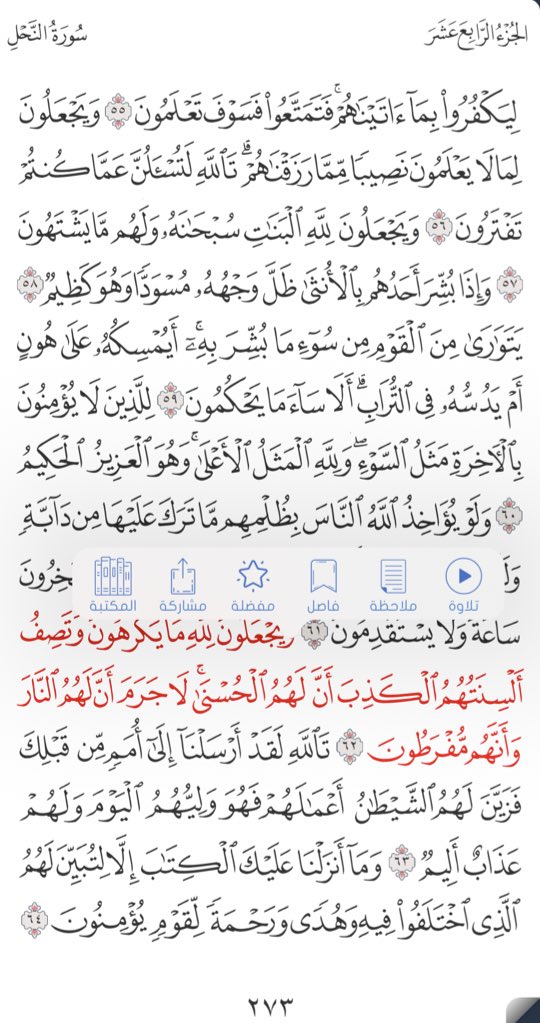 الجُزْءُ الرَّابِعَ عَشَرَ
سُورَةُ النَّحْلِ
لِيَكْفُرُوا۟ بِمَآ ءَاتَيْنَٰهُمْ ۚ فَتَمَتَّعُوا۟ فَسَوْفَ تَعْلَمُونَ ٥٥ وَيَجْعَلُونَ
لِمَا لَا يَعْلَمُونَ نَصِيبًا مِّمَّا رَزَقْنَٰهُمْ ۗ تَٱللَّهِ لَتُسْـَٔلُنَّ عَمَّا كُنتُمْ
تَفْتَرُونَ ٥٦ وَيَجْعَلُونَ لِلَّهِ ٱلْبَنَٰتِ سُبْحَٰنَهُۥ وَلَهُم مَّا يَشْتَهُونَ
٥٧ وَإِذَا بُشِّرَ أَحَدُهُم بِٱلْأُنثَىٰ ظَلَّ وَجْهُهُۥ مُسْوَدًّا وَهُوَ كَظِيمٌ ٥٨
يَتَوَٰرَىٰ مِنَ ٱلْقَوْمِ مِن سُوٓءِ مَا بُشِّرَ بِهِۦٓ ۚ أَيُمْسِكُهُۥ عَلَىٰ هُونٍ
أَمْ يَدُسُّهُۥ فِى ٱلتُّرَابِ ۗ أَلَا سَآءَ مَا يَحْكُمُونَ ٥٩ لِلَّذِينَ لَا يُؤْمِنُونَ
بِٱلْـَٔاخِرَةِ مَثَلُ ٱلسَّوْءِ ۖ وَلِلَّهِ ٱلْمَثَلُ ٱلْأَعْلَىٰ ۚ وَهُوَ ٱلْعَزِيزُ ٱلْحَكِيمُ
٦٠ وَلَوْ يُؤَاخِذُ ٱللَّهُ ٱلنَّاسَ بِظُلْمِهِم مَّا تَرَكَ عَلَيْهَا مِن دَآبَّةٍ
تلاوة
ملاحظة
فاصل
مفضلة
مشاركة
المكتبة
سَاعَةً وَلَا يَسْتَقْدِمُونَ ٦١ يَجْعَلُونَ لِلَّهِ مَا يَكْرَهُونَ وَتَصِفُ
أَلْسِنَتُهُمُ ٱلْكَذِبَ أَنَّ لَهُمُ ٱلْحُسْنَىٰ ۖ لَا جَرَمَ أَنَّ لَهُمُ ٱلنَّارَ
وَأَنَّهُم مُّفْرَطُونَ ٦٢ تَٱللَّهِ لَقَدْ أَرْسَلْنَآ إِلَىٰٓ أُمَمٍ مِّن قَبْلِكَ
فَزَيَّنَ لَهُمُ ٱلشَّيْطَٰنُ أَعْمَٰلَهُمْ فَهُوَ وَلِيُّهُمُ ٱلْيَوْمَ وَلَهُمْ
عَذَابٌ أَلِيمٌ ٦٣ وَمَآ أَنزَلْنَا عَلَيْكَ ٱلْكِتَٰبَ إِلَّا لِتُبَيِّنَ لَهُمُ
ٱلَّذِى ٱخْتَلَفُوا۟ فِيهِ وَهُدًى وَرَحْمَةً لِّقَوْمٍ يُؤْمِنُونَ ٦٤
٢٧٣